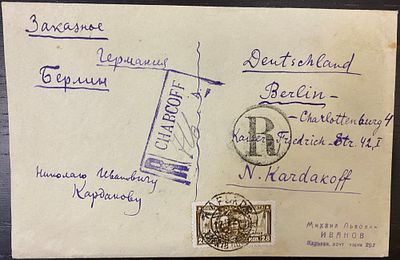 Заказное
Германия
Берлин
Николаю Ивановичу
Кардакову
R CHARCOFF
Deutschland
Berlin-
-Charlottenburg 4
Kaiser Friedrich-Str 42, I
N. Kardakoff
R
Михаил Львович
ИВАНОВ
Харьков, почт. ящик